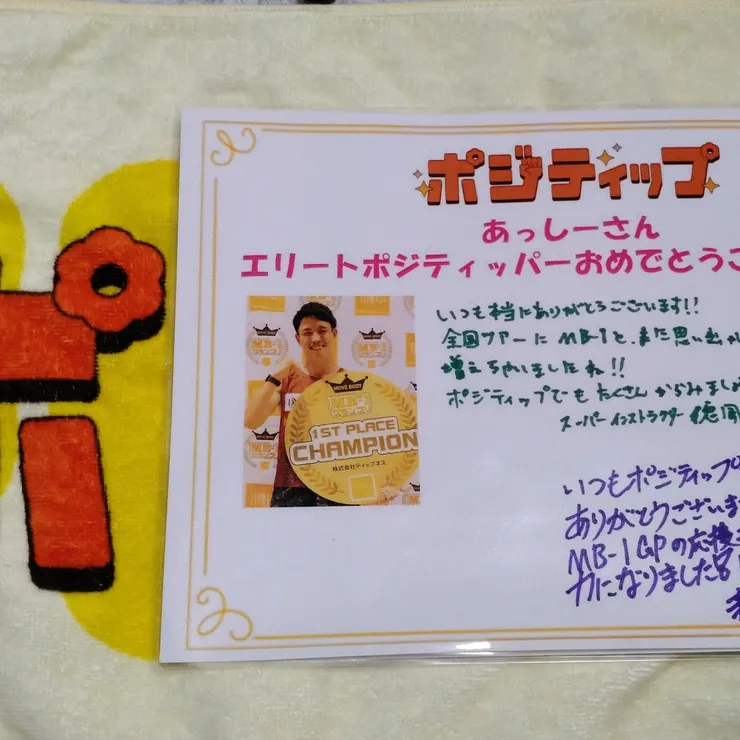 ポジティップ
あっしーさん
エリートポジティッパーおめでとうご
いつも本当にありがとうございます!!
全国ツアーにMB-1と、また思い出が
増えちゃいましたね!!
ポジティップでもたくさんからみましょ
スーパーインストラクター 徳
MOVE BODY
1ST PLACE
CHAMPION
株式会社ティップネス
いつもポジティップ
ありがとうございま
MB-1GPの応援
力になりました